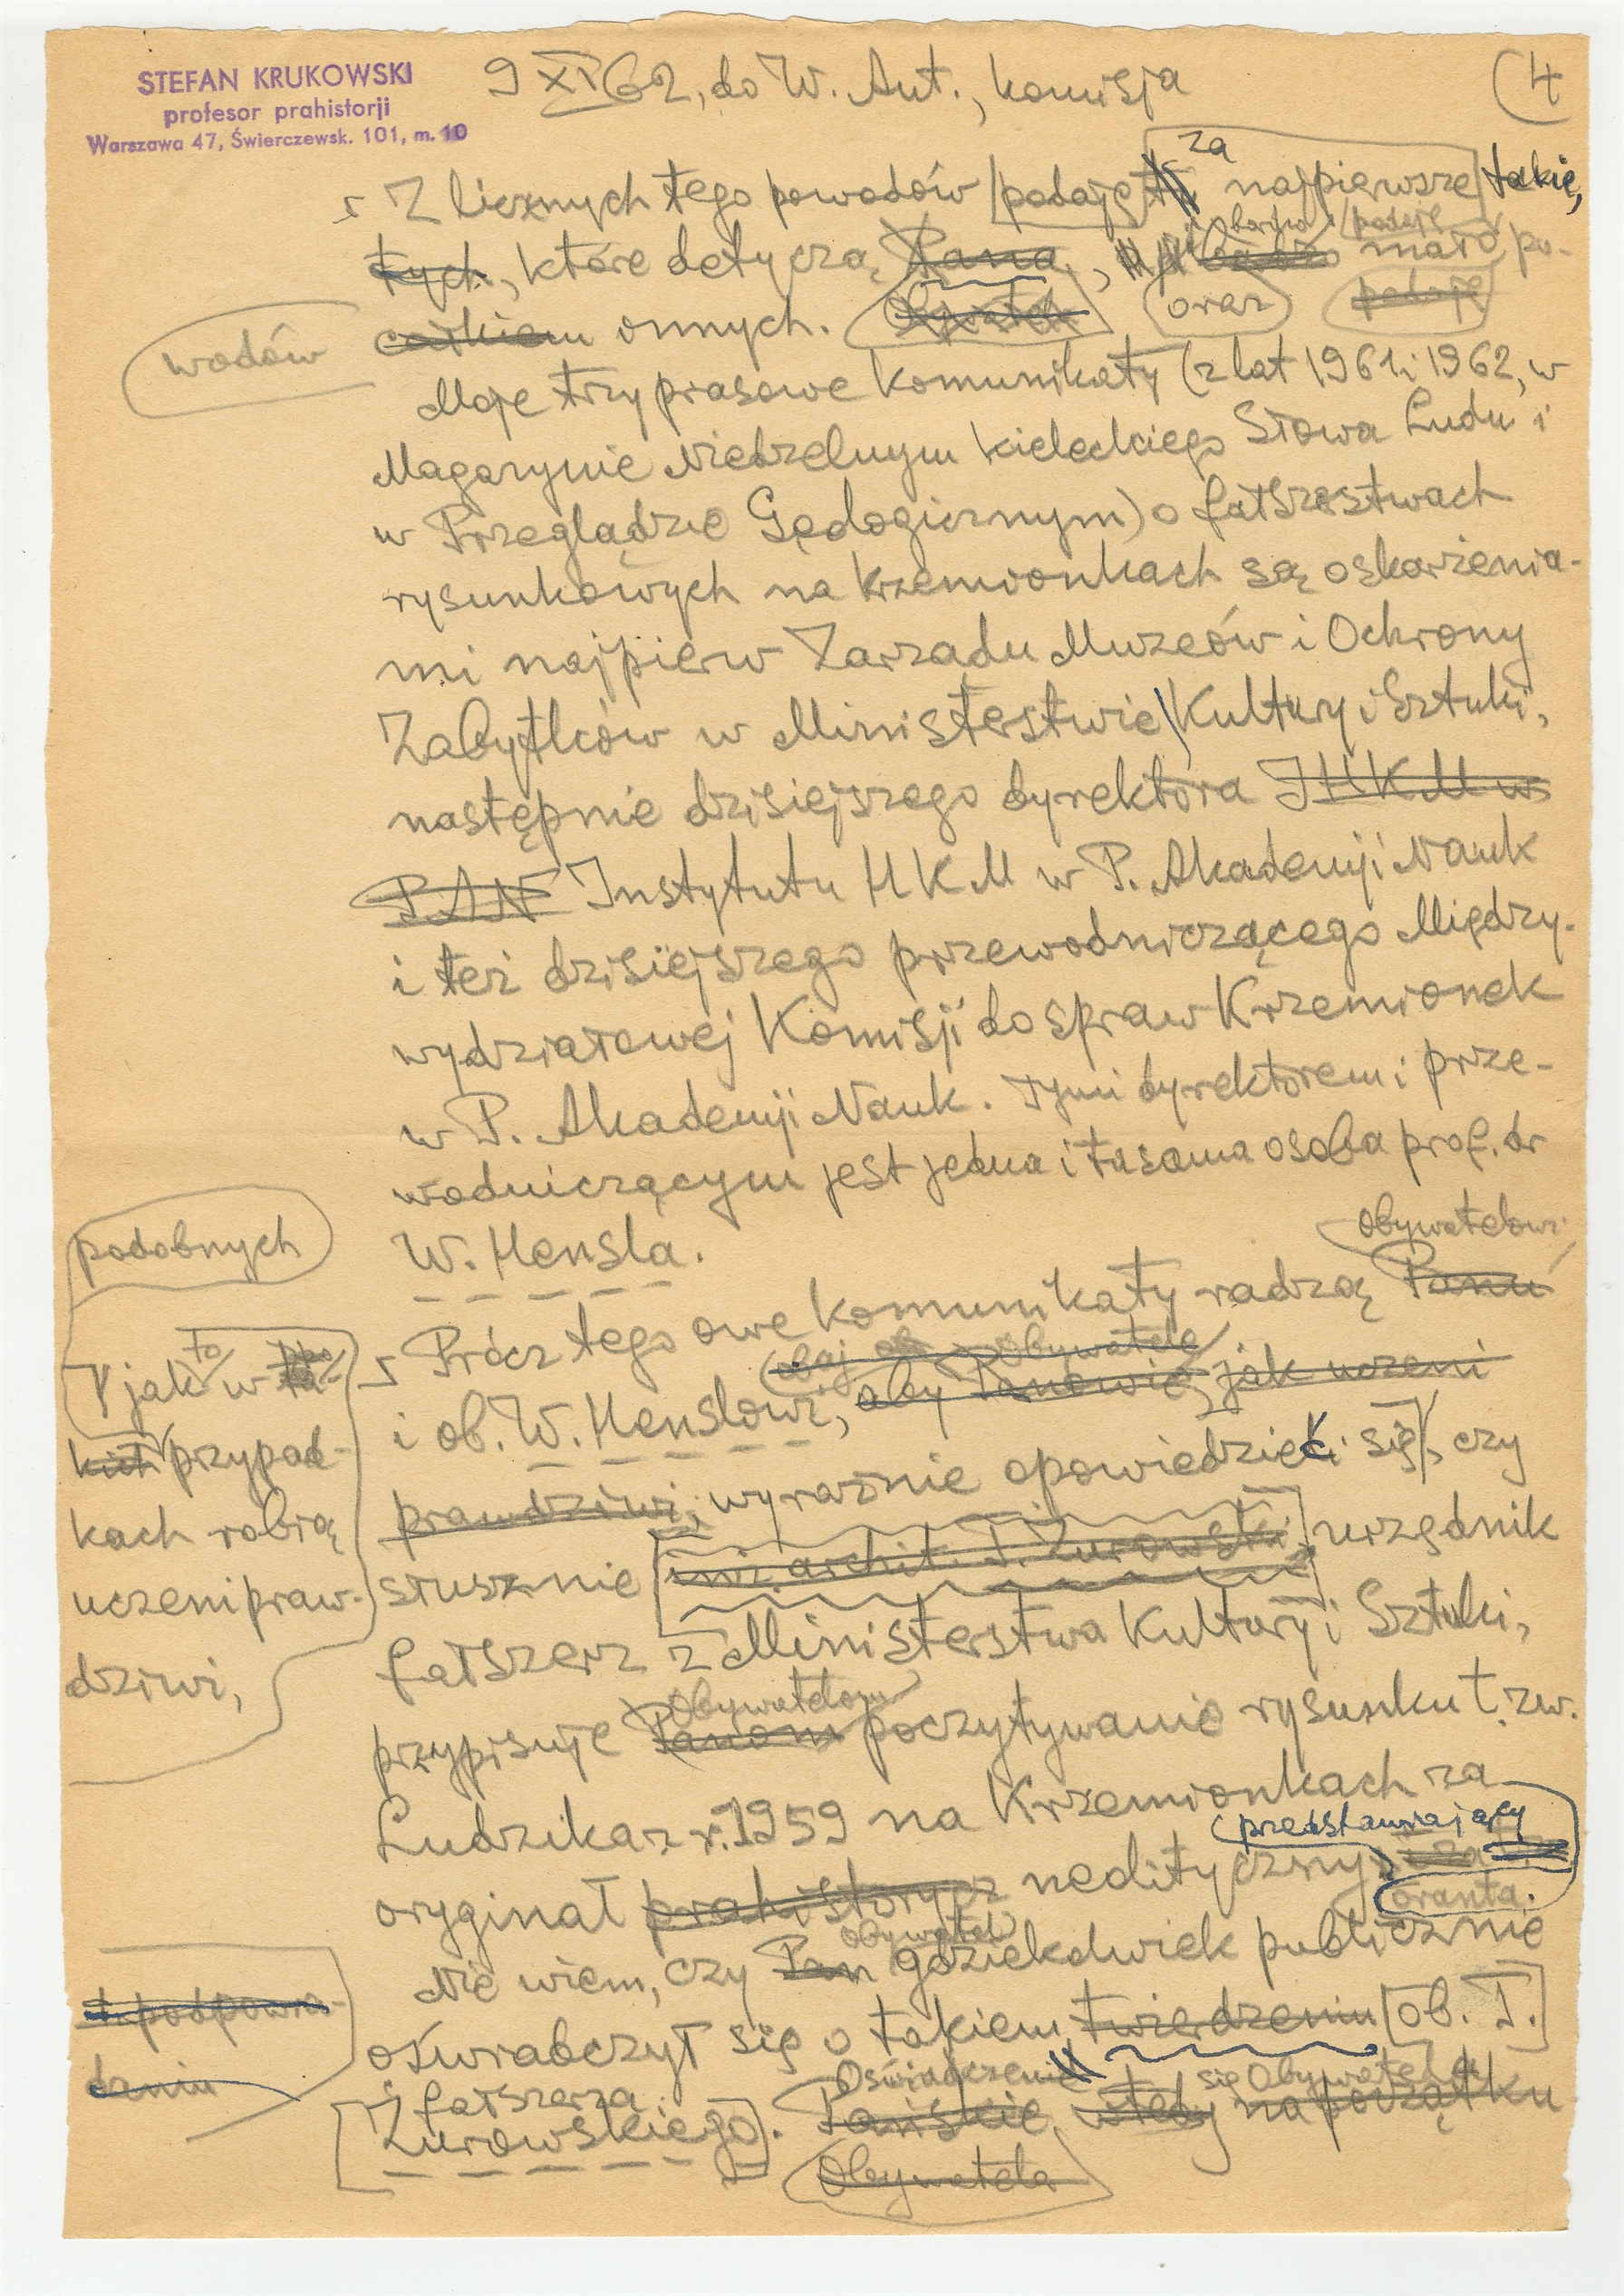 STEFAN KRUKOWSKI
profesor prahistorji
Warszawa 47, Świerczewsk. 101, m. 10
9 XI 62, do W. Ant., komisja
4
za
Z licznych tego powodów podaję najpierwsze takie,
bardzo podaję
tych, które dotyczą Pana, mało po-
wodów
całkiem onnych. Obywatela oraz podaję
Moje trzy prasowe komunikaty (z lat 1961 i 1962, w
Magazynie Niedzielnym kieleckiego Słowa Ludu i
w Przeglądzie Geologicznym) o fałszerstwach
rysunkowych na Krzemionkach są oskarżenia-
mi najpierw Zarządu Muzeów i Ochrony
Zabytków w Ministerstwie Kultury i Sztuki,
następnie dzisiejszego dyrektora IHKM w
PAN Instytutu HKM w P. Akademji Nauk
i też dzisiejszego przewodniczącego Między-
wydziałowej Komisji do spraw Krzemionek
w P. Akademji Nauk. Tymi dyrektorem i prze-
wodniczącym jest jedna i tasama osoba prof. dr
W. Hensla.
podobnych
Obywatelowi
Prócz tego owe komunikaty radzą Panu
obaj Obywatele
i ob. W. Henslowi, aby Panowie, jak uczeni
prawdziwi, wyraźnie opowiedzieli się, czy
to
jak w ta-
kich przypad-
kach robią
uczeni praw-
dziwi,
słusznie inż. archit. T. Żurowski urzędnik
fałszerz z Ministerstwa Kultury i Sztuki,
Obywatelom
przypisuje Panom poczytywanie rysunku t. zw.
Ludzika z r. 1959 na Krzemionkach za
przedstawiający
oryginał prahistorycz neolityczny za
oranta.
Obywatel
Nie wiem, czy Pan gdziekolwiek publicznie
oświadczył się o takiem twierdzeniu ob. T.
podpowia-
daniu
fałszerza Oświadczenie się Obywatela
Żurowskiego. Pańskie wtedy na początku
Obywatela